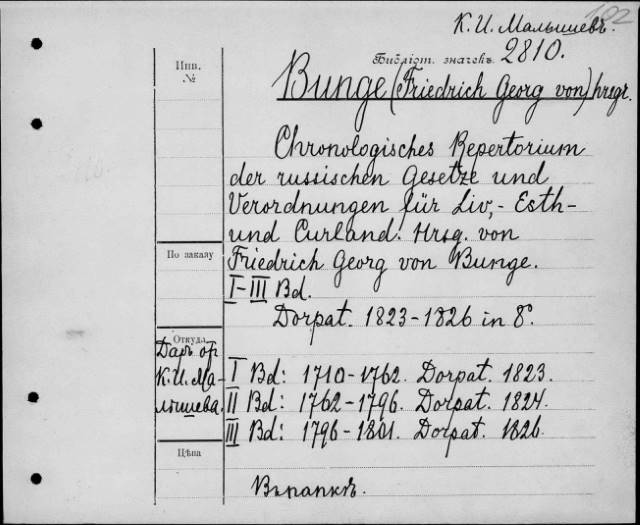 102
К. И. Малышевъ.
Библіот. значекъ 2810.
Инв. №
Bunge (Friedrich Georg von) hrsgr.
Chronologisches Repertorium
der russischen Gesetze und
Verordnungen für Liv,- Esth-
und Curland. Hrsg. von
По заказу
Friedrich Georg von Bunge.
I-III Bd.
Dorpat. 1823-1826 in 8°.
Откуда
Даръ от
К. И. Ма-
лышева.
I Bd: 1710-1762. Dorpat. 1823.
II Bd: 1762-1796. Dorpat. 1824.
III Bd: 1796-1801. Dorpat. 1826.
Цѣна
Въ папкѣ.